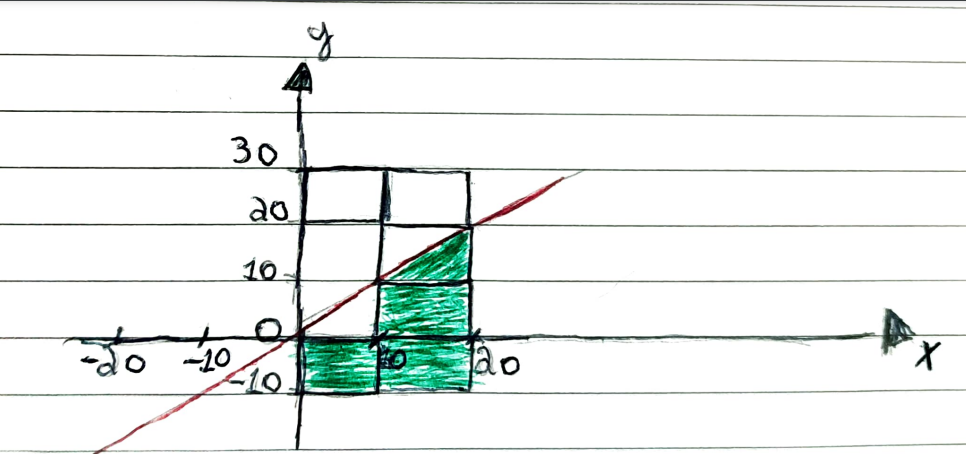 y
30
20
10
0
-20 -10 10 20
-10
x